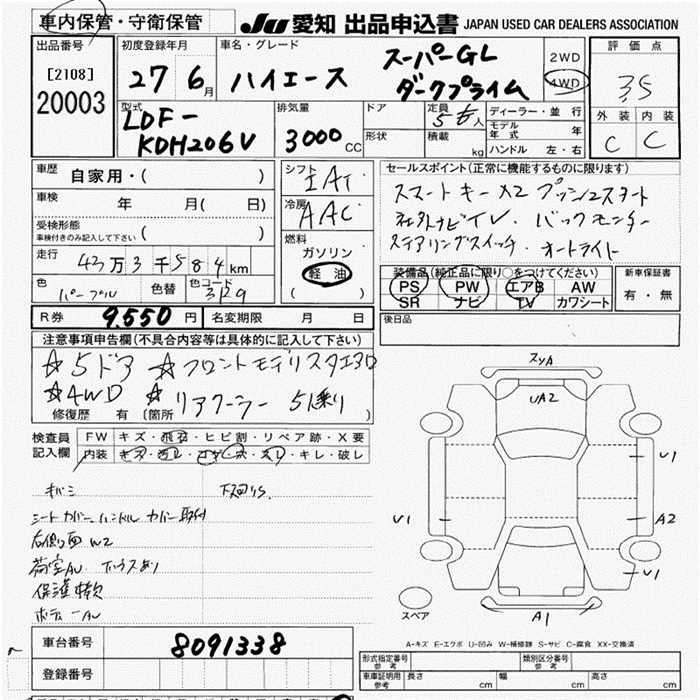 車内保管・守衛保管
JU 愛知 出品申込書 JAPAN USED CAR DEALERS ASSOCIATION
出品番号 [2108] 20003
初度登録年月 27 6月
車名・グレード ハイエース スーパーGL ダークプライム
2WD 4WD
評価点 3.5
外装 内装
C C
型式 LDF-KDH206V
排気量 3000 CC
ドア 形状
定員 5 人
積載 kg
ディーラー・並行
モデル年式 年
ハンドル 左・右
車歴 自家用・( )
車検 年 月( 日)
受検形態
車検付きのみ記入して下さい ( )
走行 43万3千584km
色 パープル 色替 色コード 3P9
シフト IAT
冷房 AAC
燃料 ガソリン 軽油 ( )
セールスポイント(正常に機能するものに限ります)
スマートキーX2 プッシュスタート
社外ナビTV. バックモニター
ステアリングスイッチ. オートライト
装備品(純正品に限り○をつけてください)
PS PW エアB AW
SR ナビ TV カワシート
新車保証書 有・無
R券 9,550 円 名変期限 月 日
後日品
注意事項申告欄(不具合内容等は具体的に記入して下さい)
☆5ドア ☆フロントモデリスタエアロ
☆4WD ☆リアクーラー 5人乗り
修復歴 有 (箇所 )
検査員記入欄
FW キズ・飛石・ヒビ割・リペア跡・X要
内装 キズ・汚レ・コゲ・穴・スレ・キレ・破レ
下廻りS
シートカバー、ハンドルカバー取付
右側面W2
ボディーAU
UA2
U1
U1 A2
U1
A1
スペア
A-キズ E-エクボ U-凹み W-補修跡 S-サビ C-腐食 XX-交換済
車台番号 8091338
登録番号
形式指定番号 参考
類別区分番号 参考
車庫証明用 参考 長さ cm 幅 cm 高さ cm